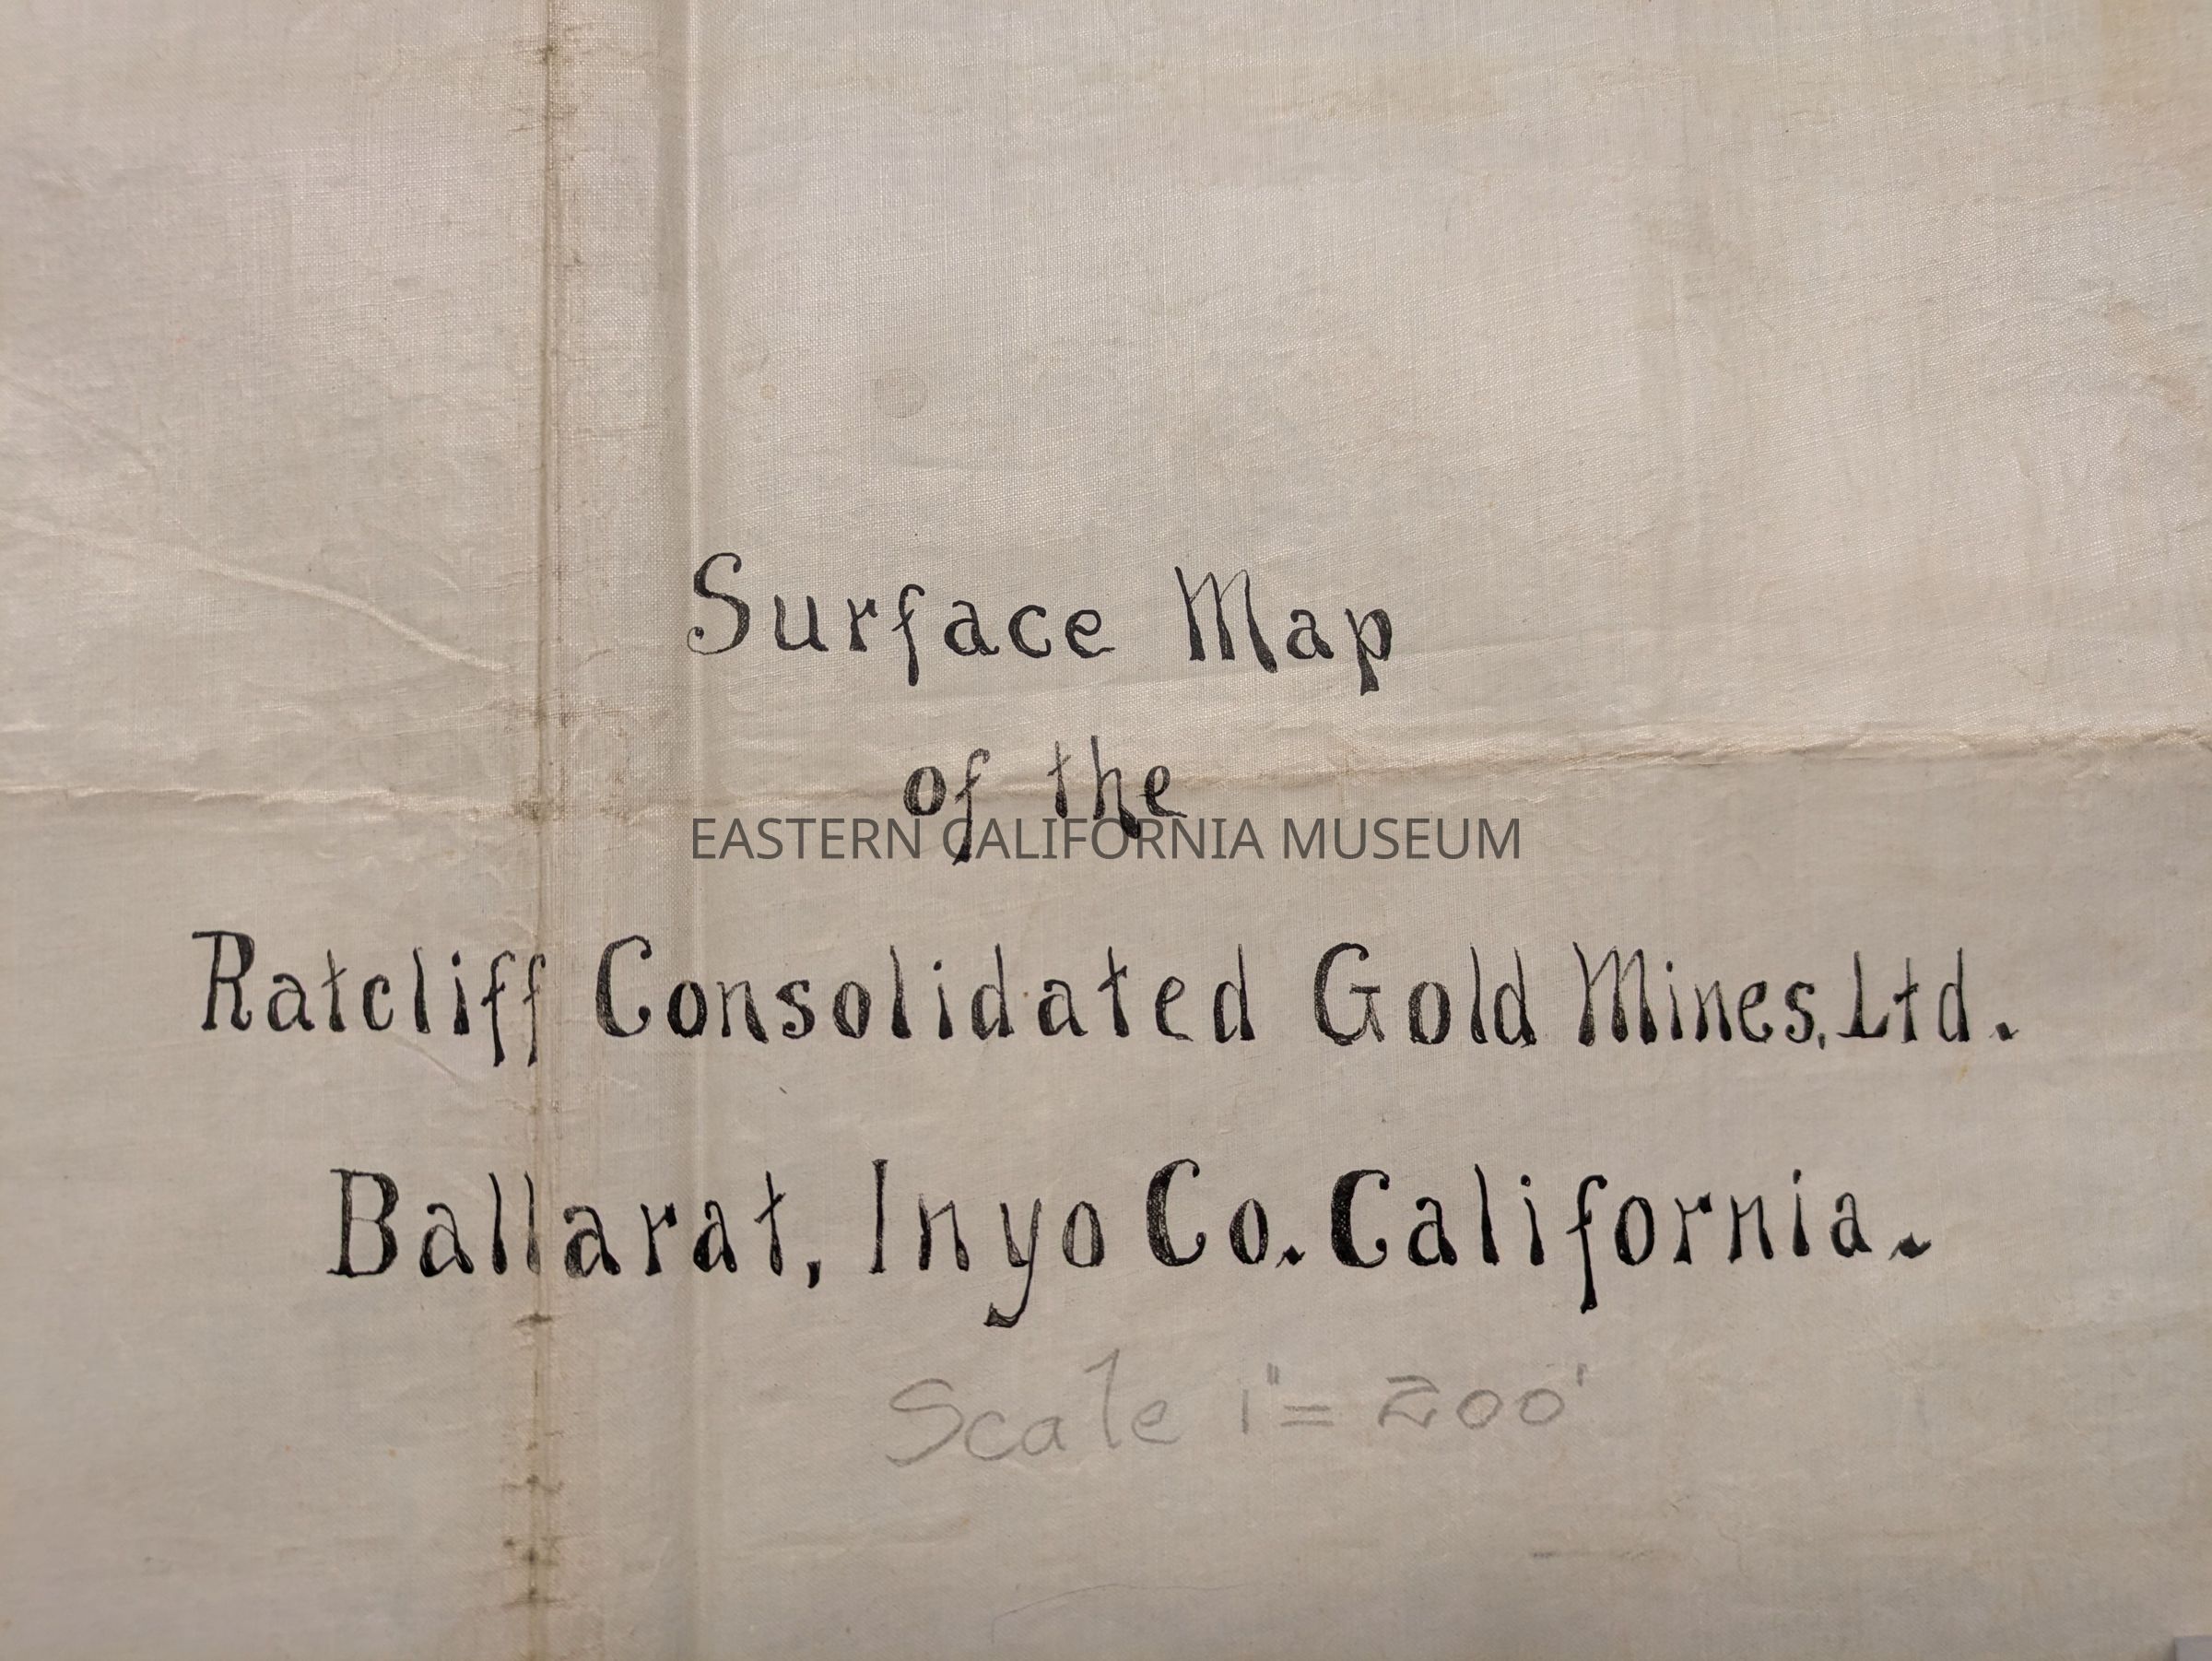 Surface Map
of the
EASTERN CALIFORNIA MUSEUM
Ratcliff Consolidated Gold Mines, Ltd.
Ballarat, Inyo Co. California.
Scale 1"= 200'